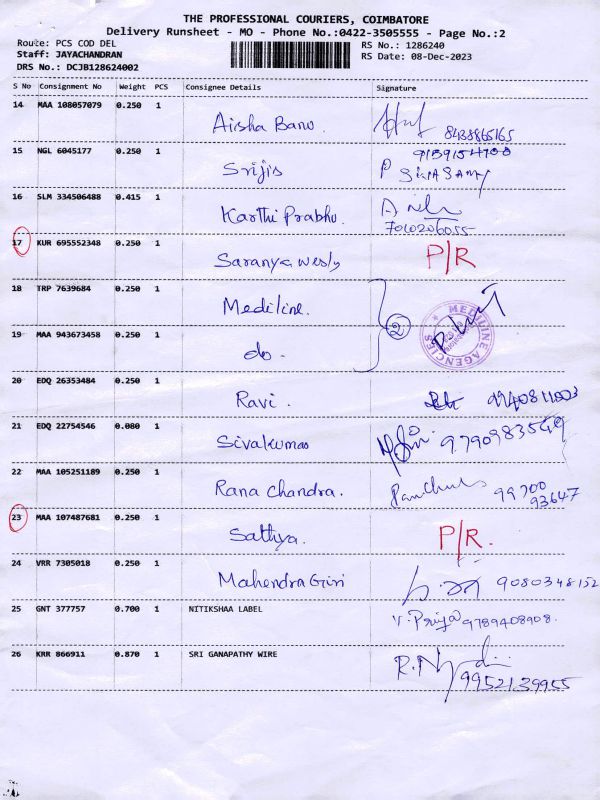 THE PROFESSIONAL COURIERS, COIMBATORE
Delivery Runsheet - MO - Phone No.:0422-3505555 - Page No.:2
Route: PCS COD DEL
RS No.: 1286240
Staff: JAYACHANDRAN
RS Date: 08-Dec-2023
DRS No.: DCJB128624002
S No Consignment No Weight PCS Consignee Details Signature
14 MAA 108057079 0.250 1
Aiisha Banu.
15 NGL 6045177 0.250 1
Srijis
P SIVASAMY
16 SLM 334506488 0.415 1
Karthi Prabhu.
7010206055
17 KUR 695552348 0.250 1
Saranya Wesly P/R
18 TRP 7639684 0.250 1
Mediline.
2
MEDILINE AGENCIES
19 MAA 943673458 0.250 1
do.
20 EDQ 26353484 0.250 1
Ravi.
21 EDQ 22754546 0.080 1
Sivakumar 9790983549
22 MAA 105251189 0.250 1
Rana Chandra. 99700
93647
23 MAA 107487681 0.250 1
Sathya. P/R.
24 VRR 7305018 0.250 1
Mahendra Giri 9080348152
25 GNT 377757 0.700 1 NITIKSHAA LABEL
V. Priya 9789408908.
26 KRR 866911 0.870 1 SRI GANAPATHY WIRE
9952139955